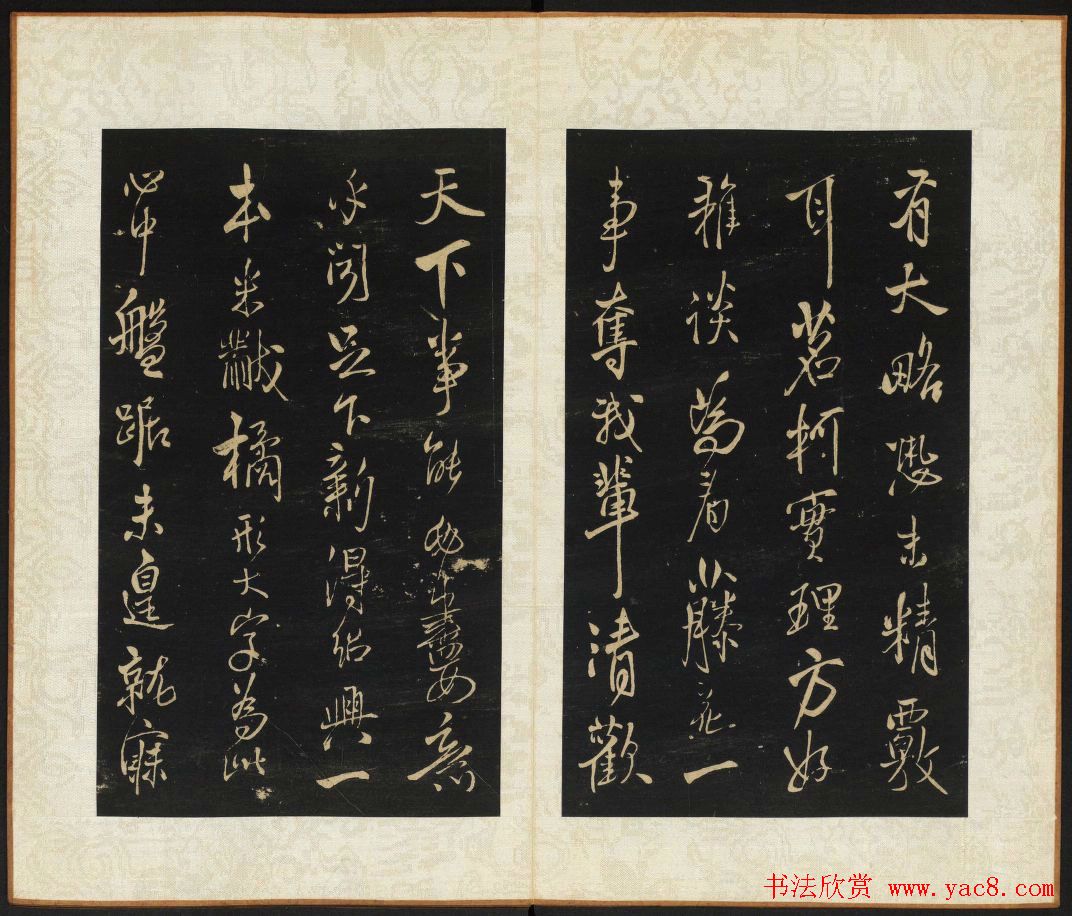 有大略恐未精覈
耳茗柯實理方好
雅談看藤花一
事奪我輩清歡
天下事能必盡如意
乎聞足下新得紹興一
本米黻橘形大字為此
心中盤踞未遑就寐
书法欣赏 www.yac8.com